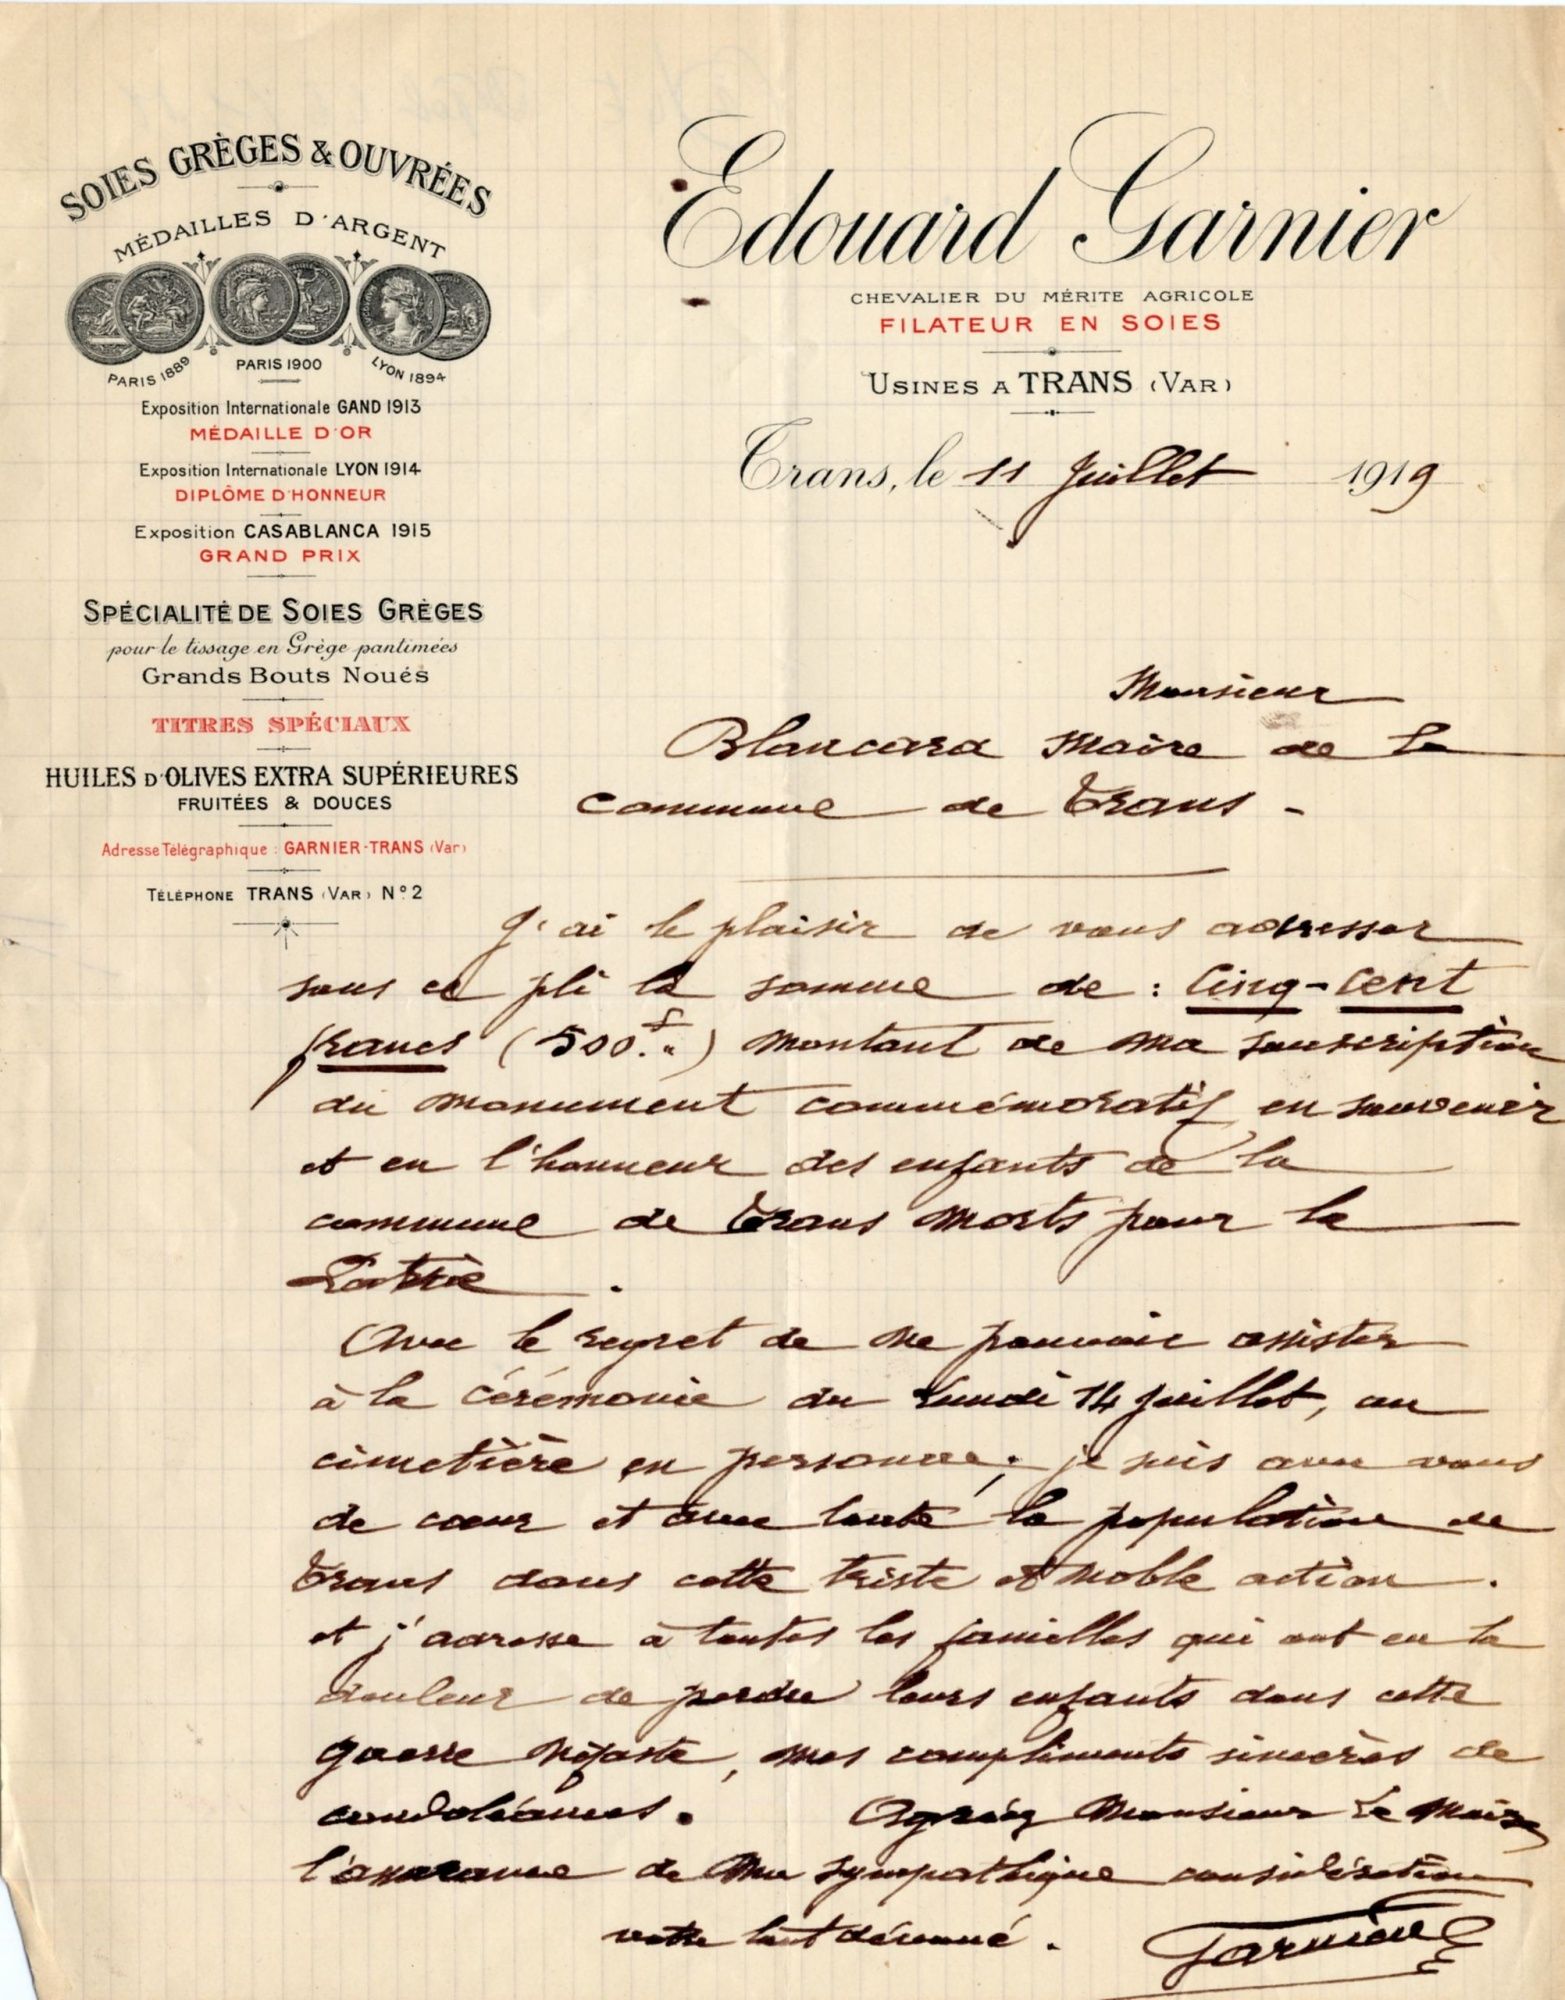 SOIES GRÈGES & OUVRÉES
MÉDAILLES D'ARGENT
PARIS 1889 PARIS 1900 LYON 1894
Exposition Internationale GAND 1913
MÉDAILLE D'OR
Exposition Internationale LYON 1914
DIPLÔME D'HONNEUR
Exposition CASABLANCA 1915
GRAND PRIX
SPÉCIALITÉ DE SOIES GRÈGES
pour le tissage en Grège pantimées
Grands Bouts Noués
TITRES SPÉCIAUX
HUILES D'OLIVES EXTRA SUPÉRIEURES
FRUITÉES & DOUCES
Adresse Télégraphique : GARNIER-TRANS (Var)
TÉLÉPHONE TRANS (VAR) Nº 2
Edouard Garnier
CHEVALIER DU MÉRITE AGRICOLE
FILATEUR EN SOIES
USINES A TRANS (VAR)
Trans, le 11 Juillet 1919
Monsieur
Blancard Maire de la
commune de Trans -
J'ai le plaisir de vous adresser
sous ce pli la somme de : Cinq-Cent
francs (500f.") montant de ma souscription
du monument commémoratif en souvenir
et en l'honneur des enfants de la
commune de Trans morts pour la
Patrie .
Avec le regret de ne pouvoir assister
à la cérémonie du Lundi 14 juillet, au
cimetière en personne; je suis avec vous
de cœur et avec toute la population de
Trans dans cette triste et noble action .
et j'adresse à toutes les familles qui ont eu la
douleur de perdre leurs enfants dans cette
guerre néfaste, mes compliments sincères de
condoléances. Agréez Monsieur Le Maire
l'assurance de ma sympathique considération
votre tout dévoué . Garnier E